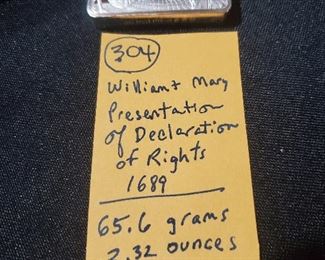 304
William & Mary
Presentation
of Declaration
of Rights
1689
65.6 grams
2.32 ounces